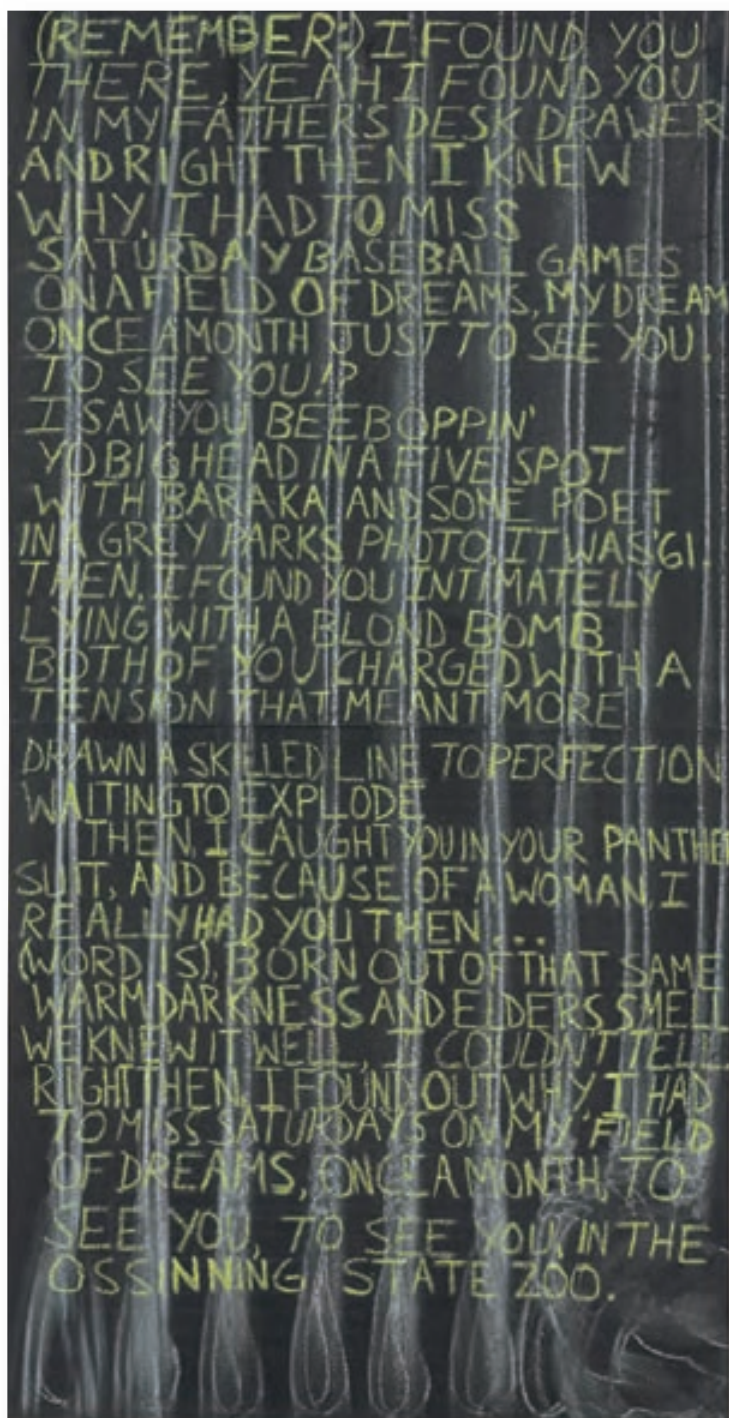 (REMEMBER:) I FOUND YOU
THERE, YEAH I FOUND YOU
IN MY FATHER'S DESK DRAWER
AND RIGHT THEN I KNEW
WHY, I HAD TO MISS
SATURDAY BASEBALL GAMES
ON A FIELD OF DREAMS, MY DREAM
ONCE A MONTH JUST TO SEE YOU.
TO SEE YOU!?
I SAW YOU BEEBOPPIN'
YO BIG HEAD IN A FIVE SPOT
WITH BARAKA AND SOME POET
IN A GREY PARKS PHOTO, IT WAS '61.
THEN, I FOUND YOU INTIMATELY
LYING WITH A BLOND BOMB
BOTH OF YOU CHARGED WITH A
TENSION THAT MEANT MORE
DRAWN A SKILLED LINE TO PERFECTION
WAITING TO EXPLODE
THEN, I CAUGHT YOU IN YOUR PANTHE
SUIT, AND BECAUSE OF A WOMAN, I
REALLY HAD YOU THEN...
(WORD IS), BORN OUT OF THAT SAME
WARM DARKNESS AND ELDERS SMELL
WE KNEW IT WELL, I COULDN'T TELL.
RIGHT THEN, I FOUND OUT WHY I HAD
TO MISS SATURDAYS ON MY FIELD
OF DREAMS, ONCE A MONTH, TO
SEE YOU, TO SEE YOU, IN THE
OSSINNING STATE ZOO.